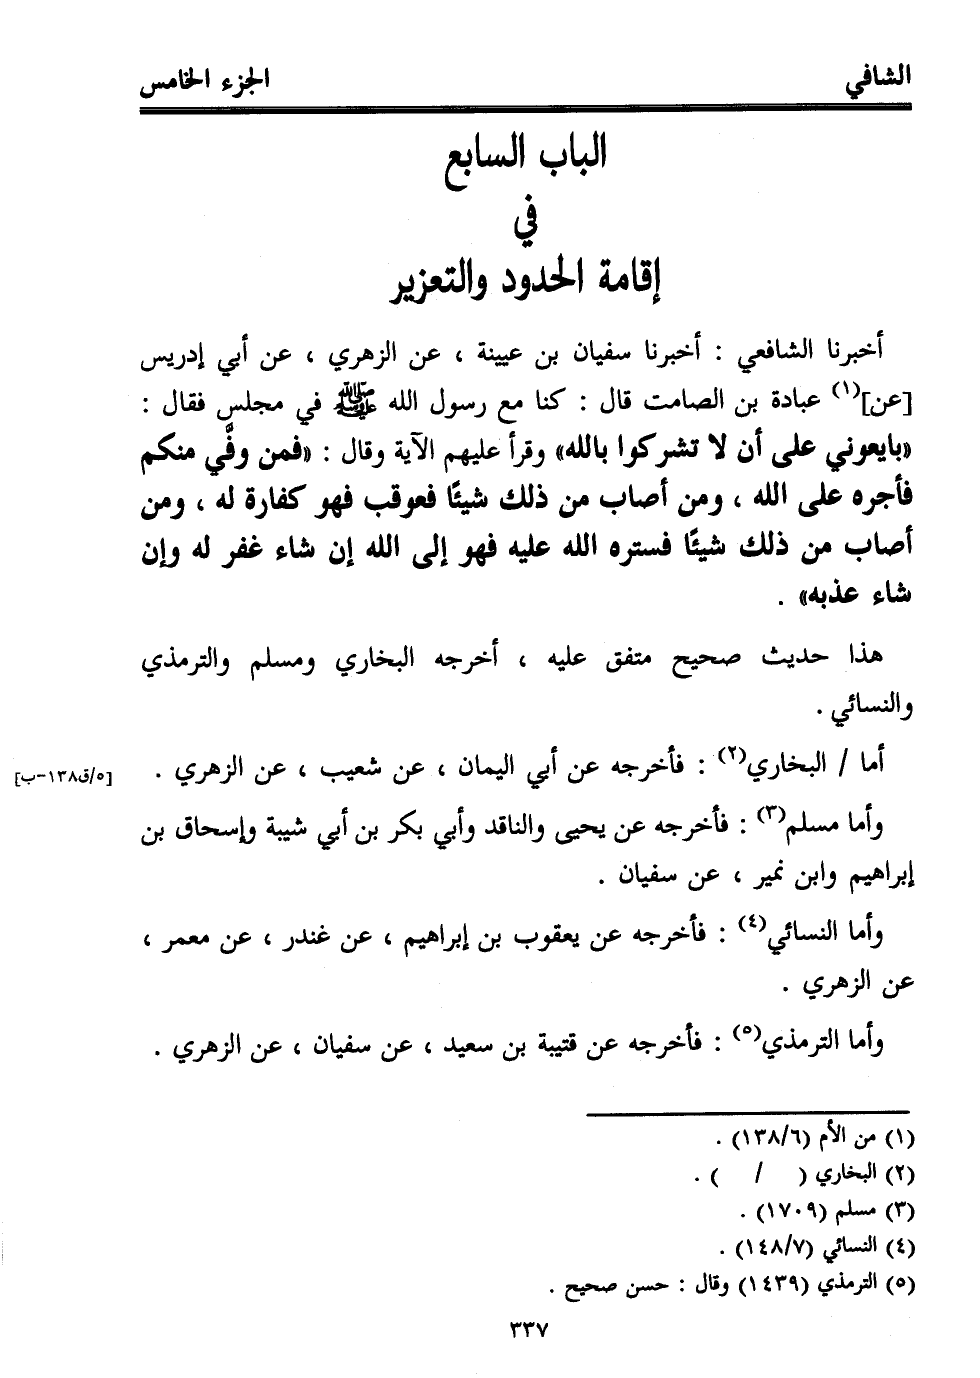 الشافي
الجزء الخامس
الباب السابع
في
إقامة الحدود والتعزير
أخبرنا الشافعي : أخبرنا سفيان بن عيينة ، عن الزهري ، عن أبي إدريس
[عن](١) عبادة بن الصامت قال : كنا مع رسول الله ﷺ في مجلس فقال :
«بايعوني على أن لا تشركوا بالله» وقرأ عليهم الآية وقال : «فمن وفَّي منكم
فأجره على الله ، ومن أصاب من ذلك شيئًا فعوقب فهو كفارة له ، ومن
أصاب من ذلك شيئًا فستره الله عليه فهو إلى الله إن شاء غفر له وإن
شاء عذبه» .
هذا حديث صحيح متفق عليه ، أخرجه البخاري ومسلم والترمذي
والنسائي .
أما / البخاري(٢) : فأخرجه عن أبي اليمان ، عن شعيب ، عن الزهري .
[٥/ق١٣٨-ب]
وأما مسلم(٣) : فأخرجه عن يحيى والناقد وأبي بكر بن أبي شيبة وإسحاق بن
إبراهيم وابن نمير ، عن سفيان .
وأما النسائي(٤) : فأخرجه عن يعقوب بن إبراهيم ، عن غندر ، عن معمر ،
عن الزهري .
وأما الترمذي(٥) : فأخرجه عن قتيبة بن سعيد ، عن سفيان ، عن الزهري .
(١) من الأم (١٣٨/٦) .
(٢) البخاري (    /    ) .
(٣) مسلم (١٧٠٩) .
(٤) النسائي (١٤٨/٧) .
(٥) الترمذي (١٤٣٩) وقال : حسن صحيح .
٣٣٧